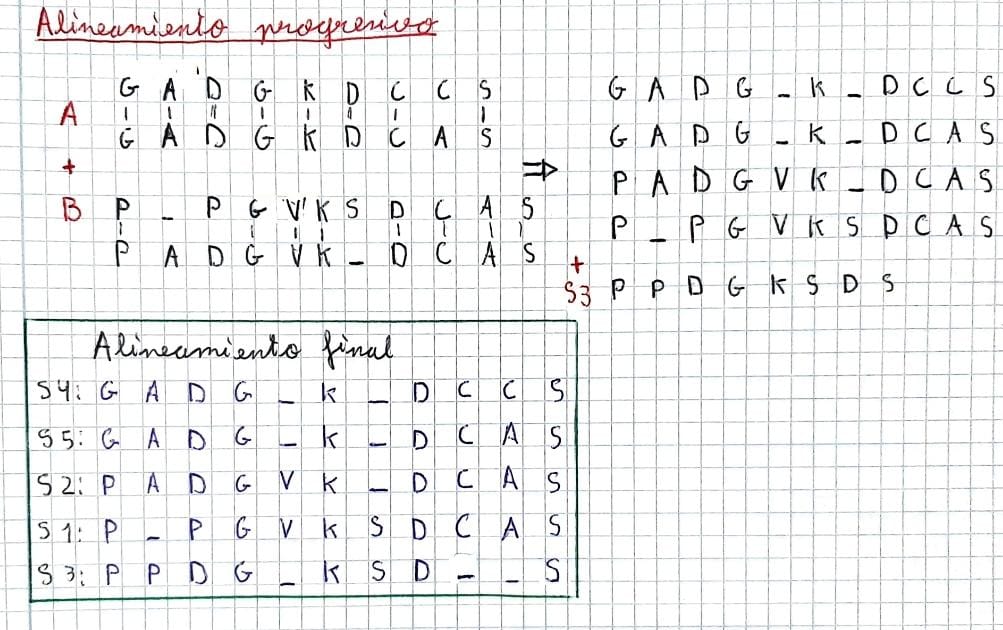 Alineamiento progresivo
G A D G K D C C S
A
G A D G K D C A S
+
B P _ P G V K S D C A S
P A D G V K _ D C A S
⇒
G A D G _ K _ D C C S
G A D G _ K _ D C A S
P A D G V K _ D C A S
P _ P G V K S D C A S
+
S3 P P D G K S D S
Alineamiento final
S4: G A D G _ K _ D C C S
S5: G A D G _ K _ D C A S
S2: P A D G V K _ D C A S
S1: P _ P G V K S D C A S
S3: P P D G _ K S D _ _ S